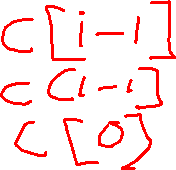 C[i-1]
C(i-1]
C[0)